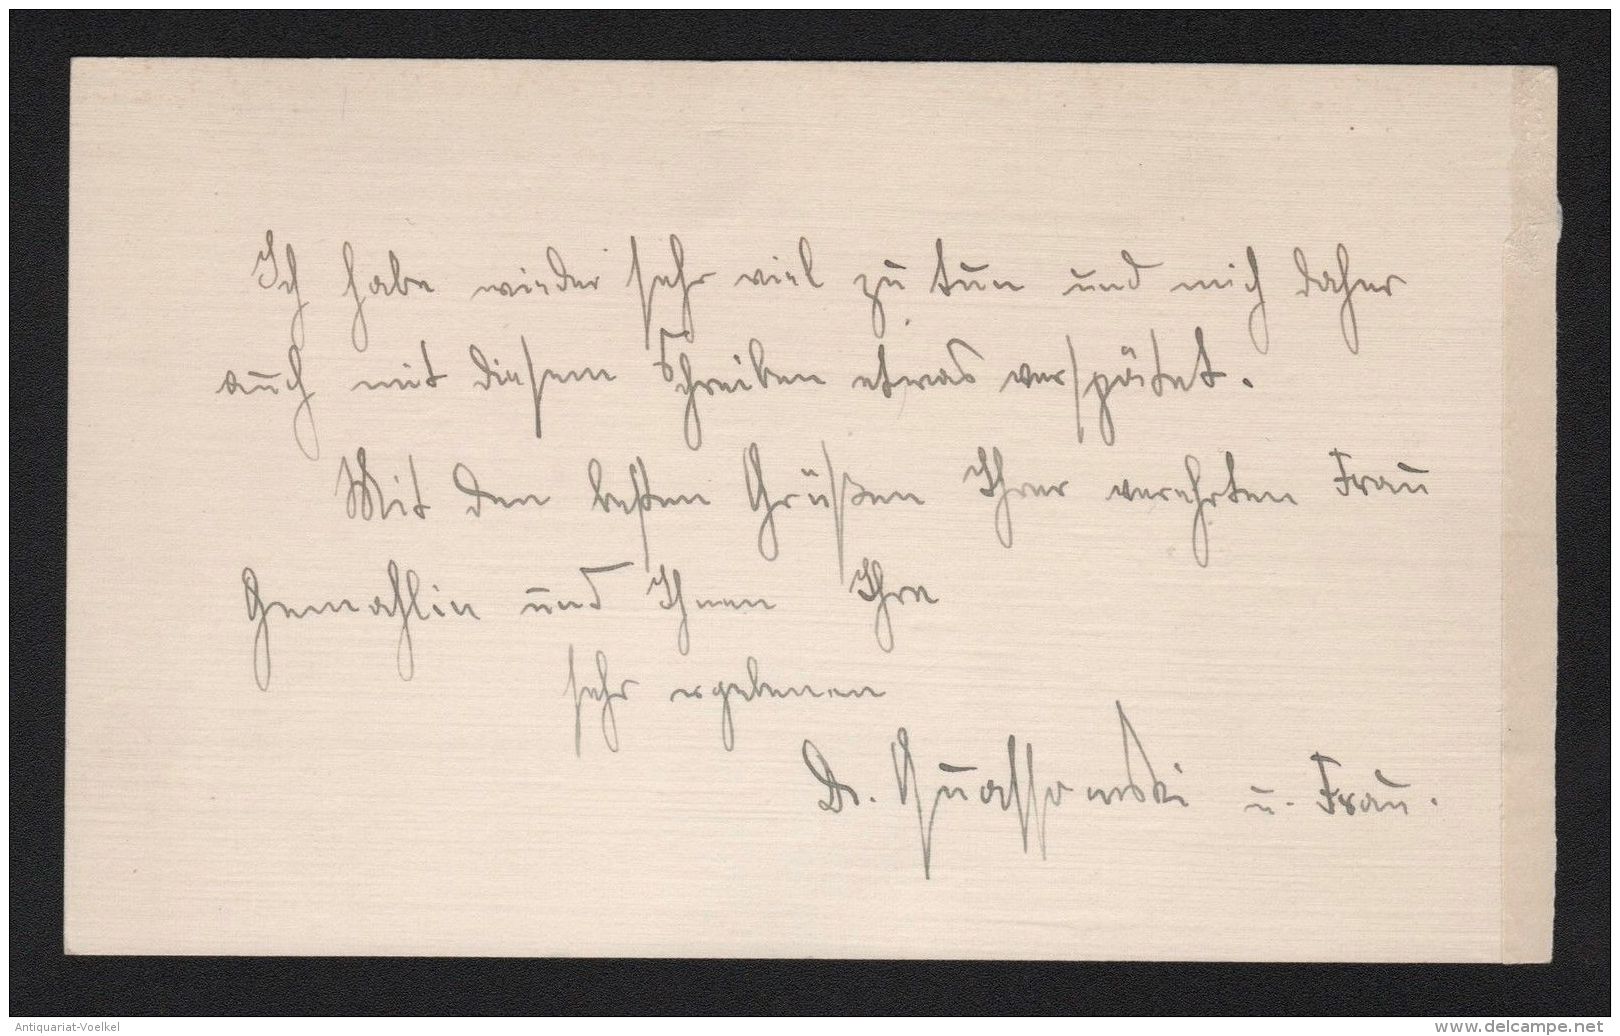 Ich habe wieder sehr viel zu tun und mich daher
auch mit diesem Schreiben etwas verspätet.
Mit den besten Grüßen Ihrer verehrten Frau
Gemahlin und Ihnen Ihre
sehr ergebenen
Dr. Quassowski u. Frau.
Antiquariat-Voelkel
www.delcampe.net